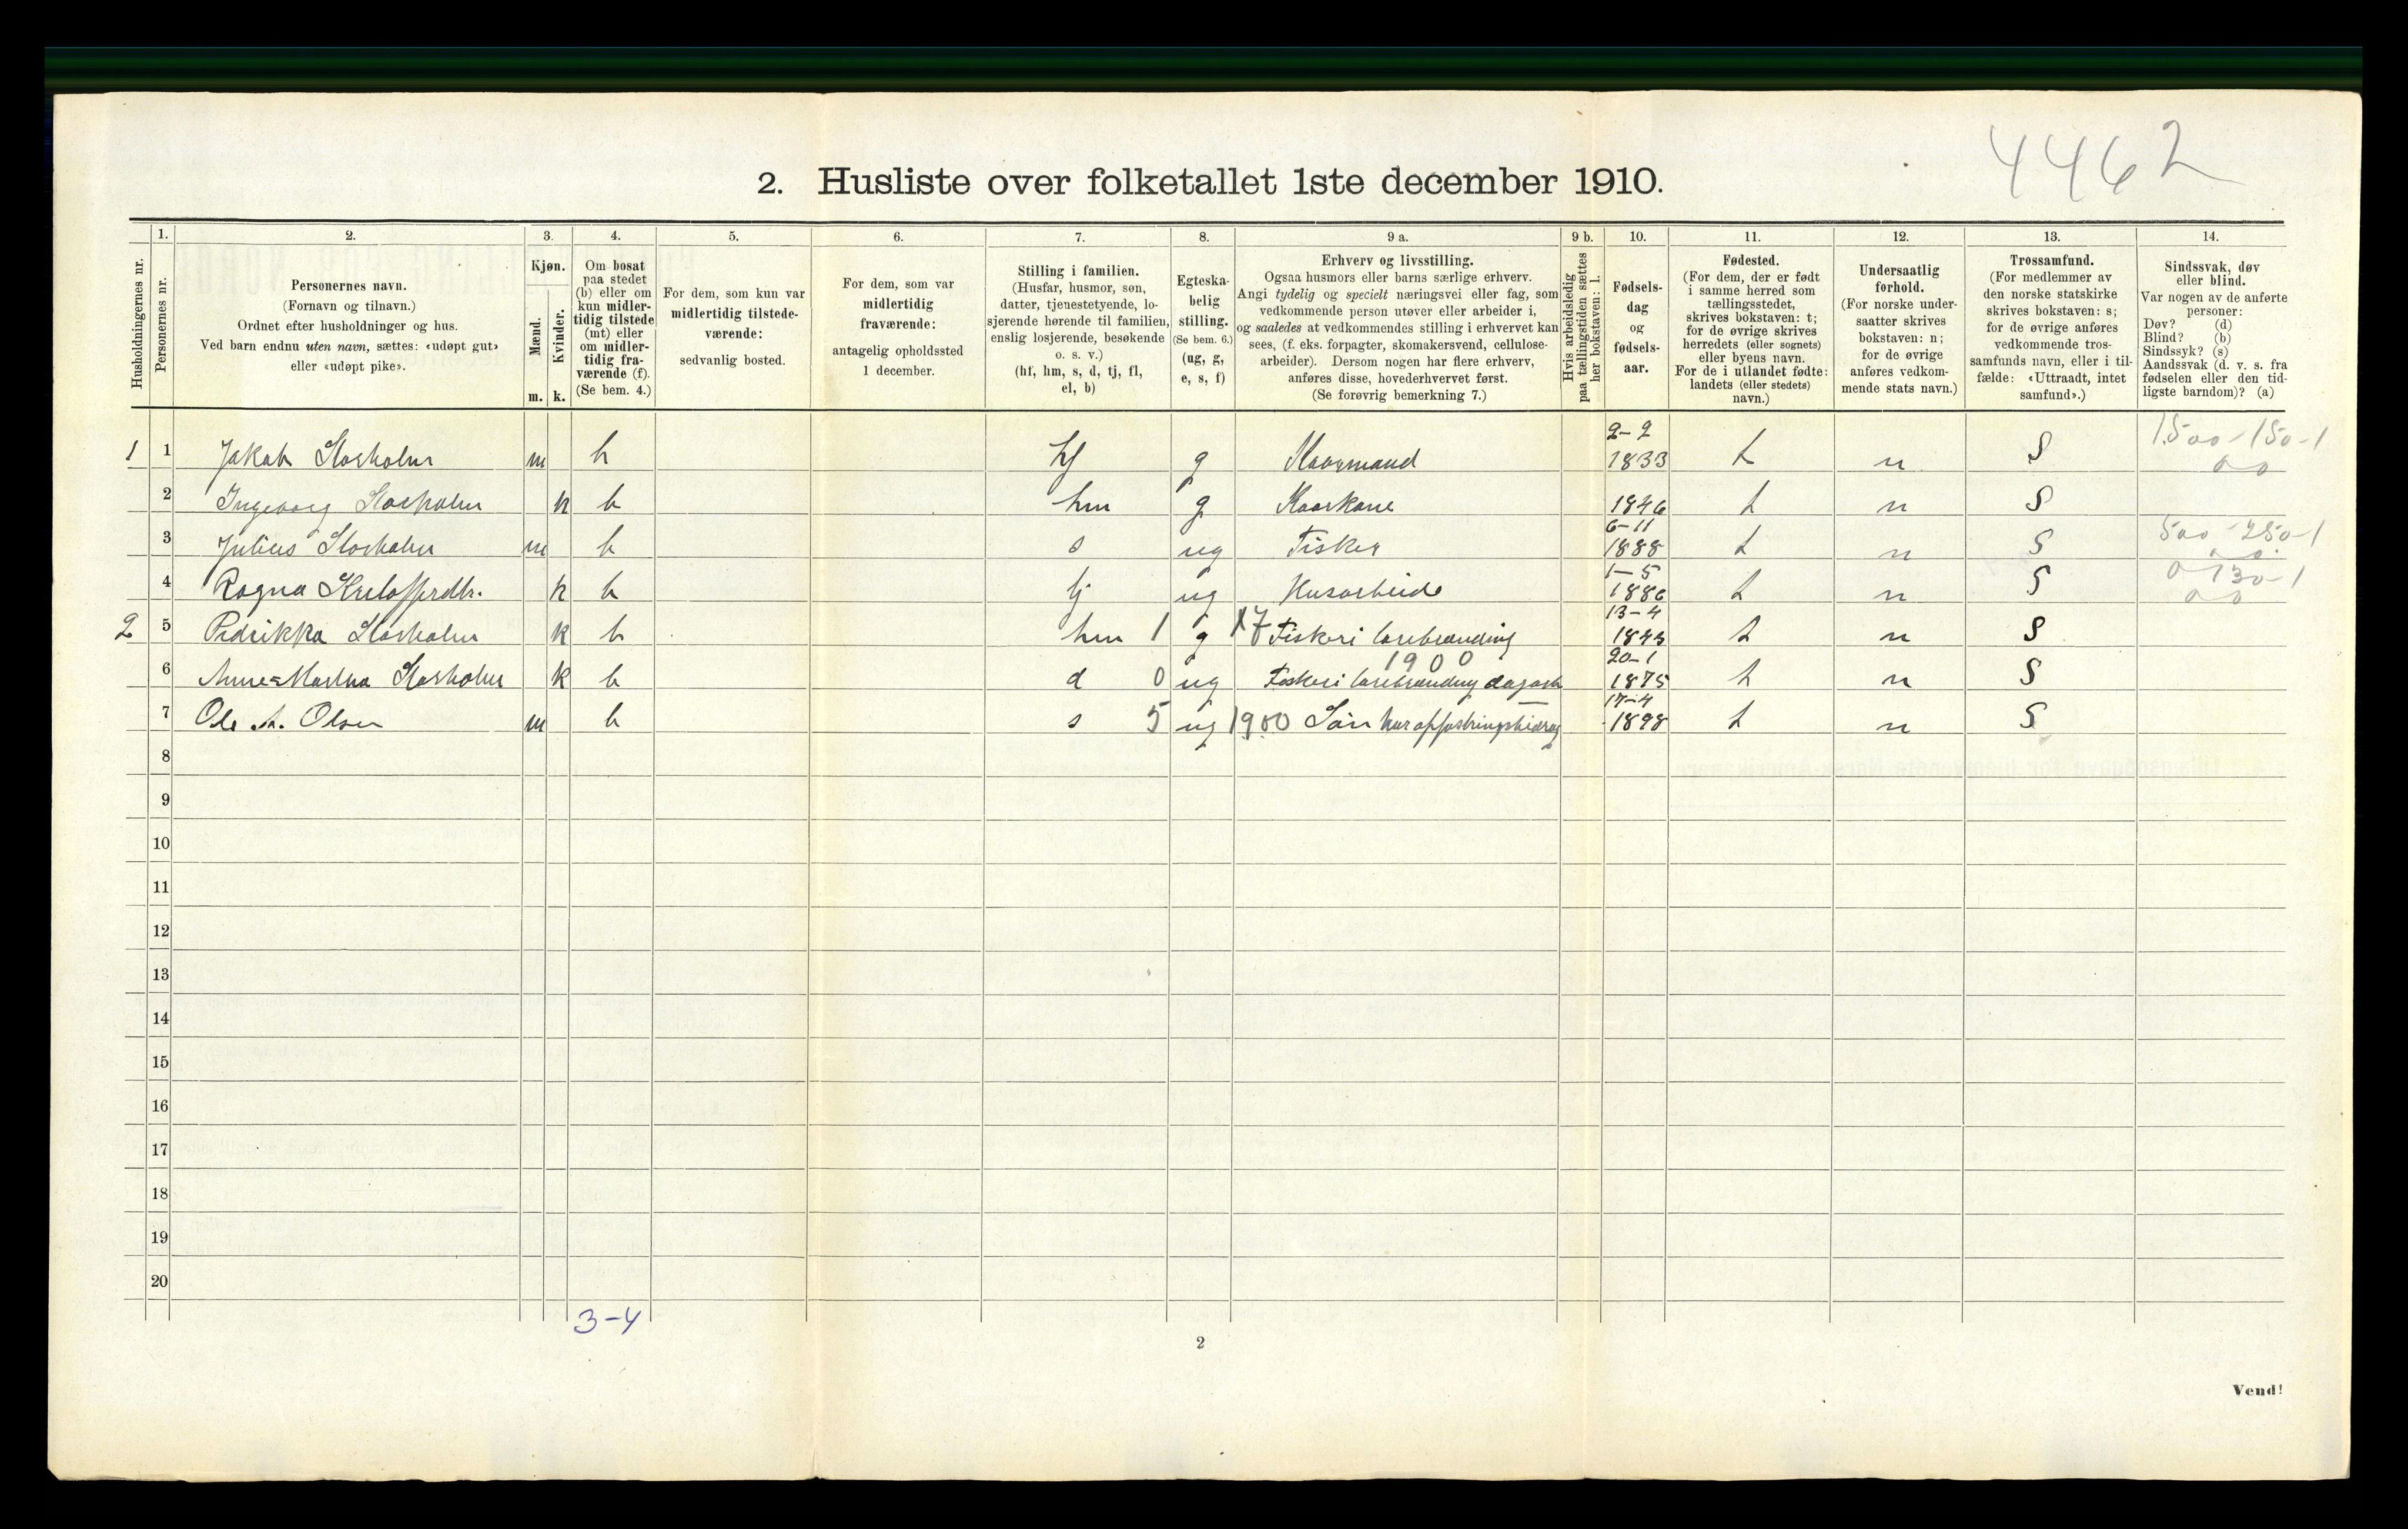 4462
2. Husliste over folketallet 1ste december 1910.
Husholdningernes nr.
1.
Personernes nr.
2.
Personernes navn.
(Fornavn og tilnavn.)
Ordnet efter husholdninger og hus.
Ved barn endnu uten navn, sættes: «udøpt gut»
eller «udøpt pike».
3.
Kjøn.
Mænd.
Kvinder.
m. k.
4.
Om bosat
paa stedet
(b) eller om
kun midler-
tidig tilstede
(mt) eller
om midler-
tidig fra-
værende (f).
(Se bem. 4.)
5.
For dem, som kun var
midlertidig tilstede-
værende:
sedvanlig bosted.
6.
For dem, som var
midlertidig
fraværende:
antagelig opholdssted
1 december.
7.
Stilling i familien.
(Husfar, husmor, søn,
datter, tjenestetyende, lo-
sjerende hørende til familien,
enslig losjerende, besøkende
o. s. v.)
(hf, hm, s, d, tj, fl,
el, b)
8.
Egteska-
belig
stilling.
(Se bem. 6.)
(ug, g,
e, s, f)
9 a.
Erhverv og livsstilling.
Ogsaa husmors eller barns særlige erhverv.
Angi tydelig og specielt næringsvei eller fag, som
vedkommende person utøver eller arbeider i,
og saaledes at vedkommendes stilling i erhvervet kan
sees, (f. eks. forpagter, skomakersvend, cellulose-
arbeider). Dersom nogen har flere erhverv,
anføres disse, hovederhvervet først.
(Se forøvrig bemerkning 7.)
9 b.
Hvis arbeidsledig
paa tællingstiden sættes
her bokstaven: l.
10.
Fødsels-
dag
og
fødsels-
aar.
11.
Fødested.
(For dem, der er født
i samme herred som
tællingsstedet,
skrives bokstaven: t;
for de øvrige skrives
herredets (eller sognets)
eller byens navn.
For de i utlandet fødte:
landets (eller stedets)
navn.)
12.
Undersaatlig
forhold.
(For norske under-
saatter skrives
bokstaven: n;
for de øvrige
anføres vedkom-
mende stats navn.)
13.
Trossamfund.
(For medlemmer av
den norske statskirke
skrives bokstaven: s;
for de øvrige anføres
vedkommende tros-
samfunds navn, eller i til-
fælde: «Uttraadt, intet
samfund».)
14.
Sindssvak, døv
eller blind.
Var nogen av de anførte
personer:
Døv? (d)
Blind? (b)
Sindssyk? (s)
Aandssvak (d. v. s. fra
fødselen eller den tid-
ligste barndom)? (a)
1 1 Jakob Storholm m b hf g Kaarmand 2-2 1833 t n S 1500-150-1
2 Ingeborg Storholm k b hm g Kaarkone 1846 t n S
3 Julius Storholm m b s ug Fisker 6-11 1888 t n S 500-250-1
4 Ragna k b tj ug Husarbeide 1-5 1886 t n S 0 130-1
2 5 Pedrikka Storholm k b hm 1 g Fiskeri 13-4 t n S
6 Storholm k b d 0 ug 1900 Fiskeri 20-1 1875 t n S
7 Ole A. Olsen m b s 5 ug 1900 Søn 17-4 1898 t n S
8
9
10
11
12
13
14
15
16
17
18
19
20
3-4
2
Vend!